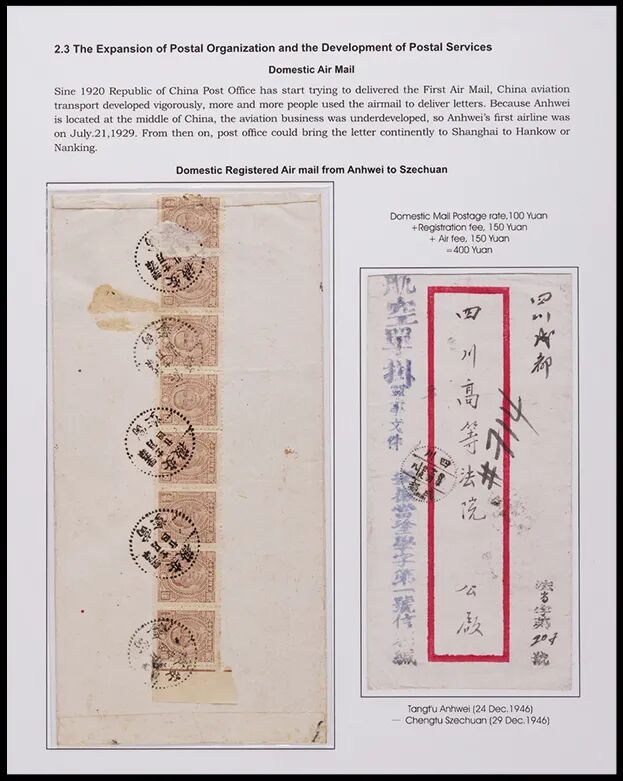 2.3 The Expansion of Postal Organization and the Development of Postal Services
Domestic Air Mail
Sine 1920 Republic of China Post Office has start trying to delivered the First Air Mail, China aviation
transport developed vigorously, more and more people used the airmail to deliver letters. Because Anhwei
is located at the middle of China, the aviation business was underdeveloped, so Anhwei's first airline was
on July.21,1929. From then on, post office could bring the letter continently to Shanghai to Hankow or
Nanking.
Domestic Registered Air mail from Anhwei to Szechuan
Domestic Mail Postage rate,100 Yuan
+Registration fee, 150 Yuan
+ Air fee, 150 Yuan
=400 Yuan
四川成都
四川高等法院 公啟
#714
航空單掛
字第一號信
四川
號
Tangt'u Anhwei (24 Dec.1946)
— Chengtu Szechuan (29 Dec.1946)